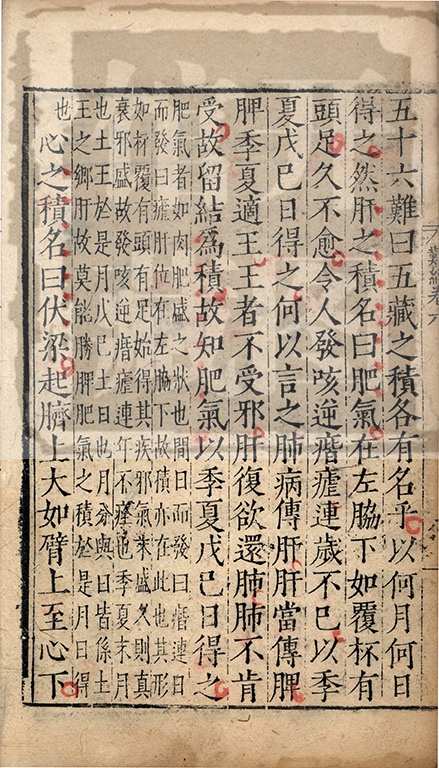 五十六難曰五藏之積各有名乎以何月何日
得之然肝之積名曰肥氣在左脇下如覆杯有
頭足久不愈令人發咳逆㾬瘧連歲不巳以季
夏戊巳日得之何以言之肺病傳肝肝當傳脾
脾季夏適王王者不受邪肝復欲還肺肺不肯
受故留結爲積故知肥氣以季夏戊巳日得之
肥氣者如肉肥盛之狀也間日而發曰㾬連日
而發曰瘧肝位在左脇下故積亦在此也其形
如杯覆有頭有足始得其疾邪氣未盛久則真
衰邪盛故發咳逆㾬瘧連年不瘥也季夏未月
也土王於是月戊巳土日也月分與日皆係土
王之鄉肝故莫能勝脾肥氣之積於是月日得
也 心之積名曰伏梁起臍上大如臂上至心下